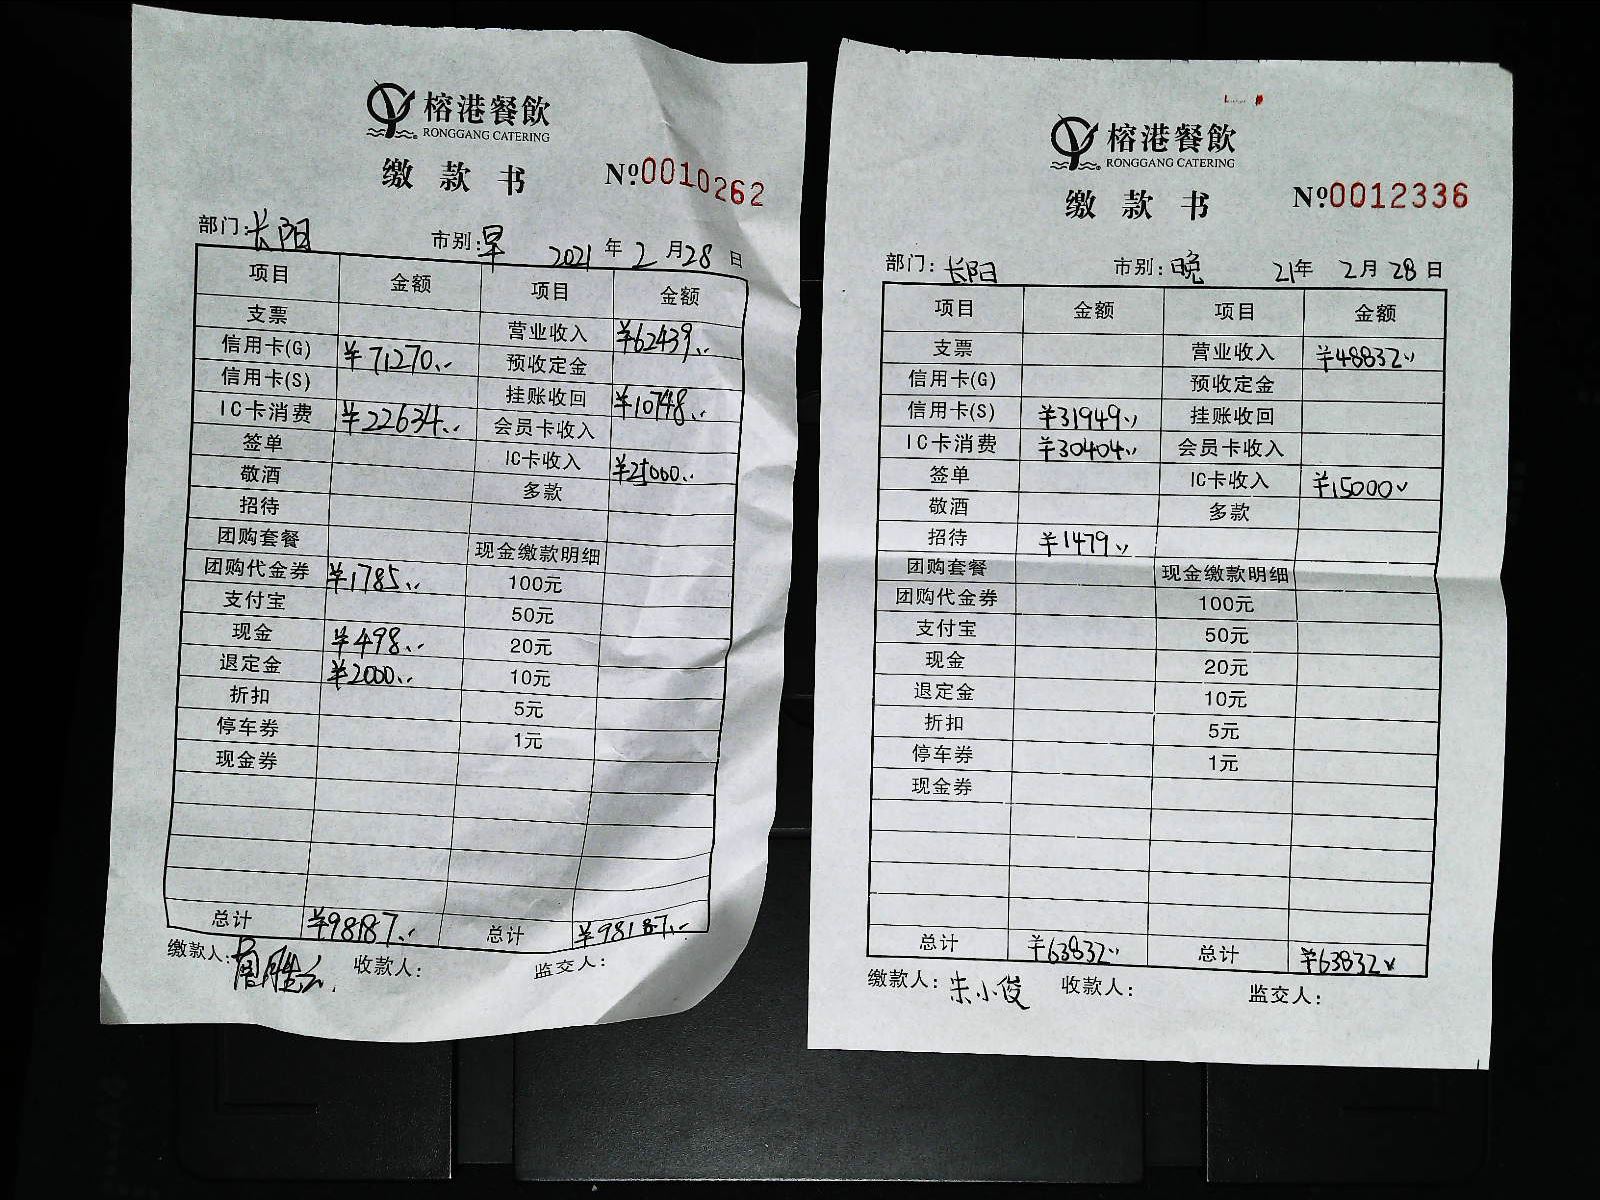 榕港餐飲
RONGGANG CATERING
缴款书 №0010262
部门:长阳 市别:早 2021年2月28日
项目 金额 项目 金额
支票 营业收入 ¥62439
信用卡(G) ¥71270 预收定金
信用卡(S) 挂账收回 ¥10748
IC卡消费 ¥22634 会员卡收入
签单 IC卡收入 ¥25000
敬酒 多款
招待
团购套餐 现金缴款明细
团购代金券 ¥1785 100元
支付宝 50元
现金 ¥498 20元
退定金 ¥2000 10元
折扣 5元
停车券 1元
现金券
总计 ¥98187 总计 ¥98187
缴款人: 收款人: 监交人:
榕港餐飲
RONGGANG CATERING
缴款书 №0012336
部门:长阳 市别:晚 21年2月28日
项目 金额 项目 金额
支票 营业收入 ¥48832
信用卡(G) 预收定金
信用卡(S) ¥31949 挂账收回
IC卡消费 ¥30404 会员卡收入
签单 IC卡收入 ¥15000
敬酒 多款
招待 ¥1479
团购套餐 现金缴款明细
团购代金券 100元
支付宝 50元
现金 20元
退定金 10元
折扣 5元
停车券 1元
现金券
总计 ¥63832 总计 ¥63832
缴款人:朱小俊 收款人: 监交人: